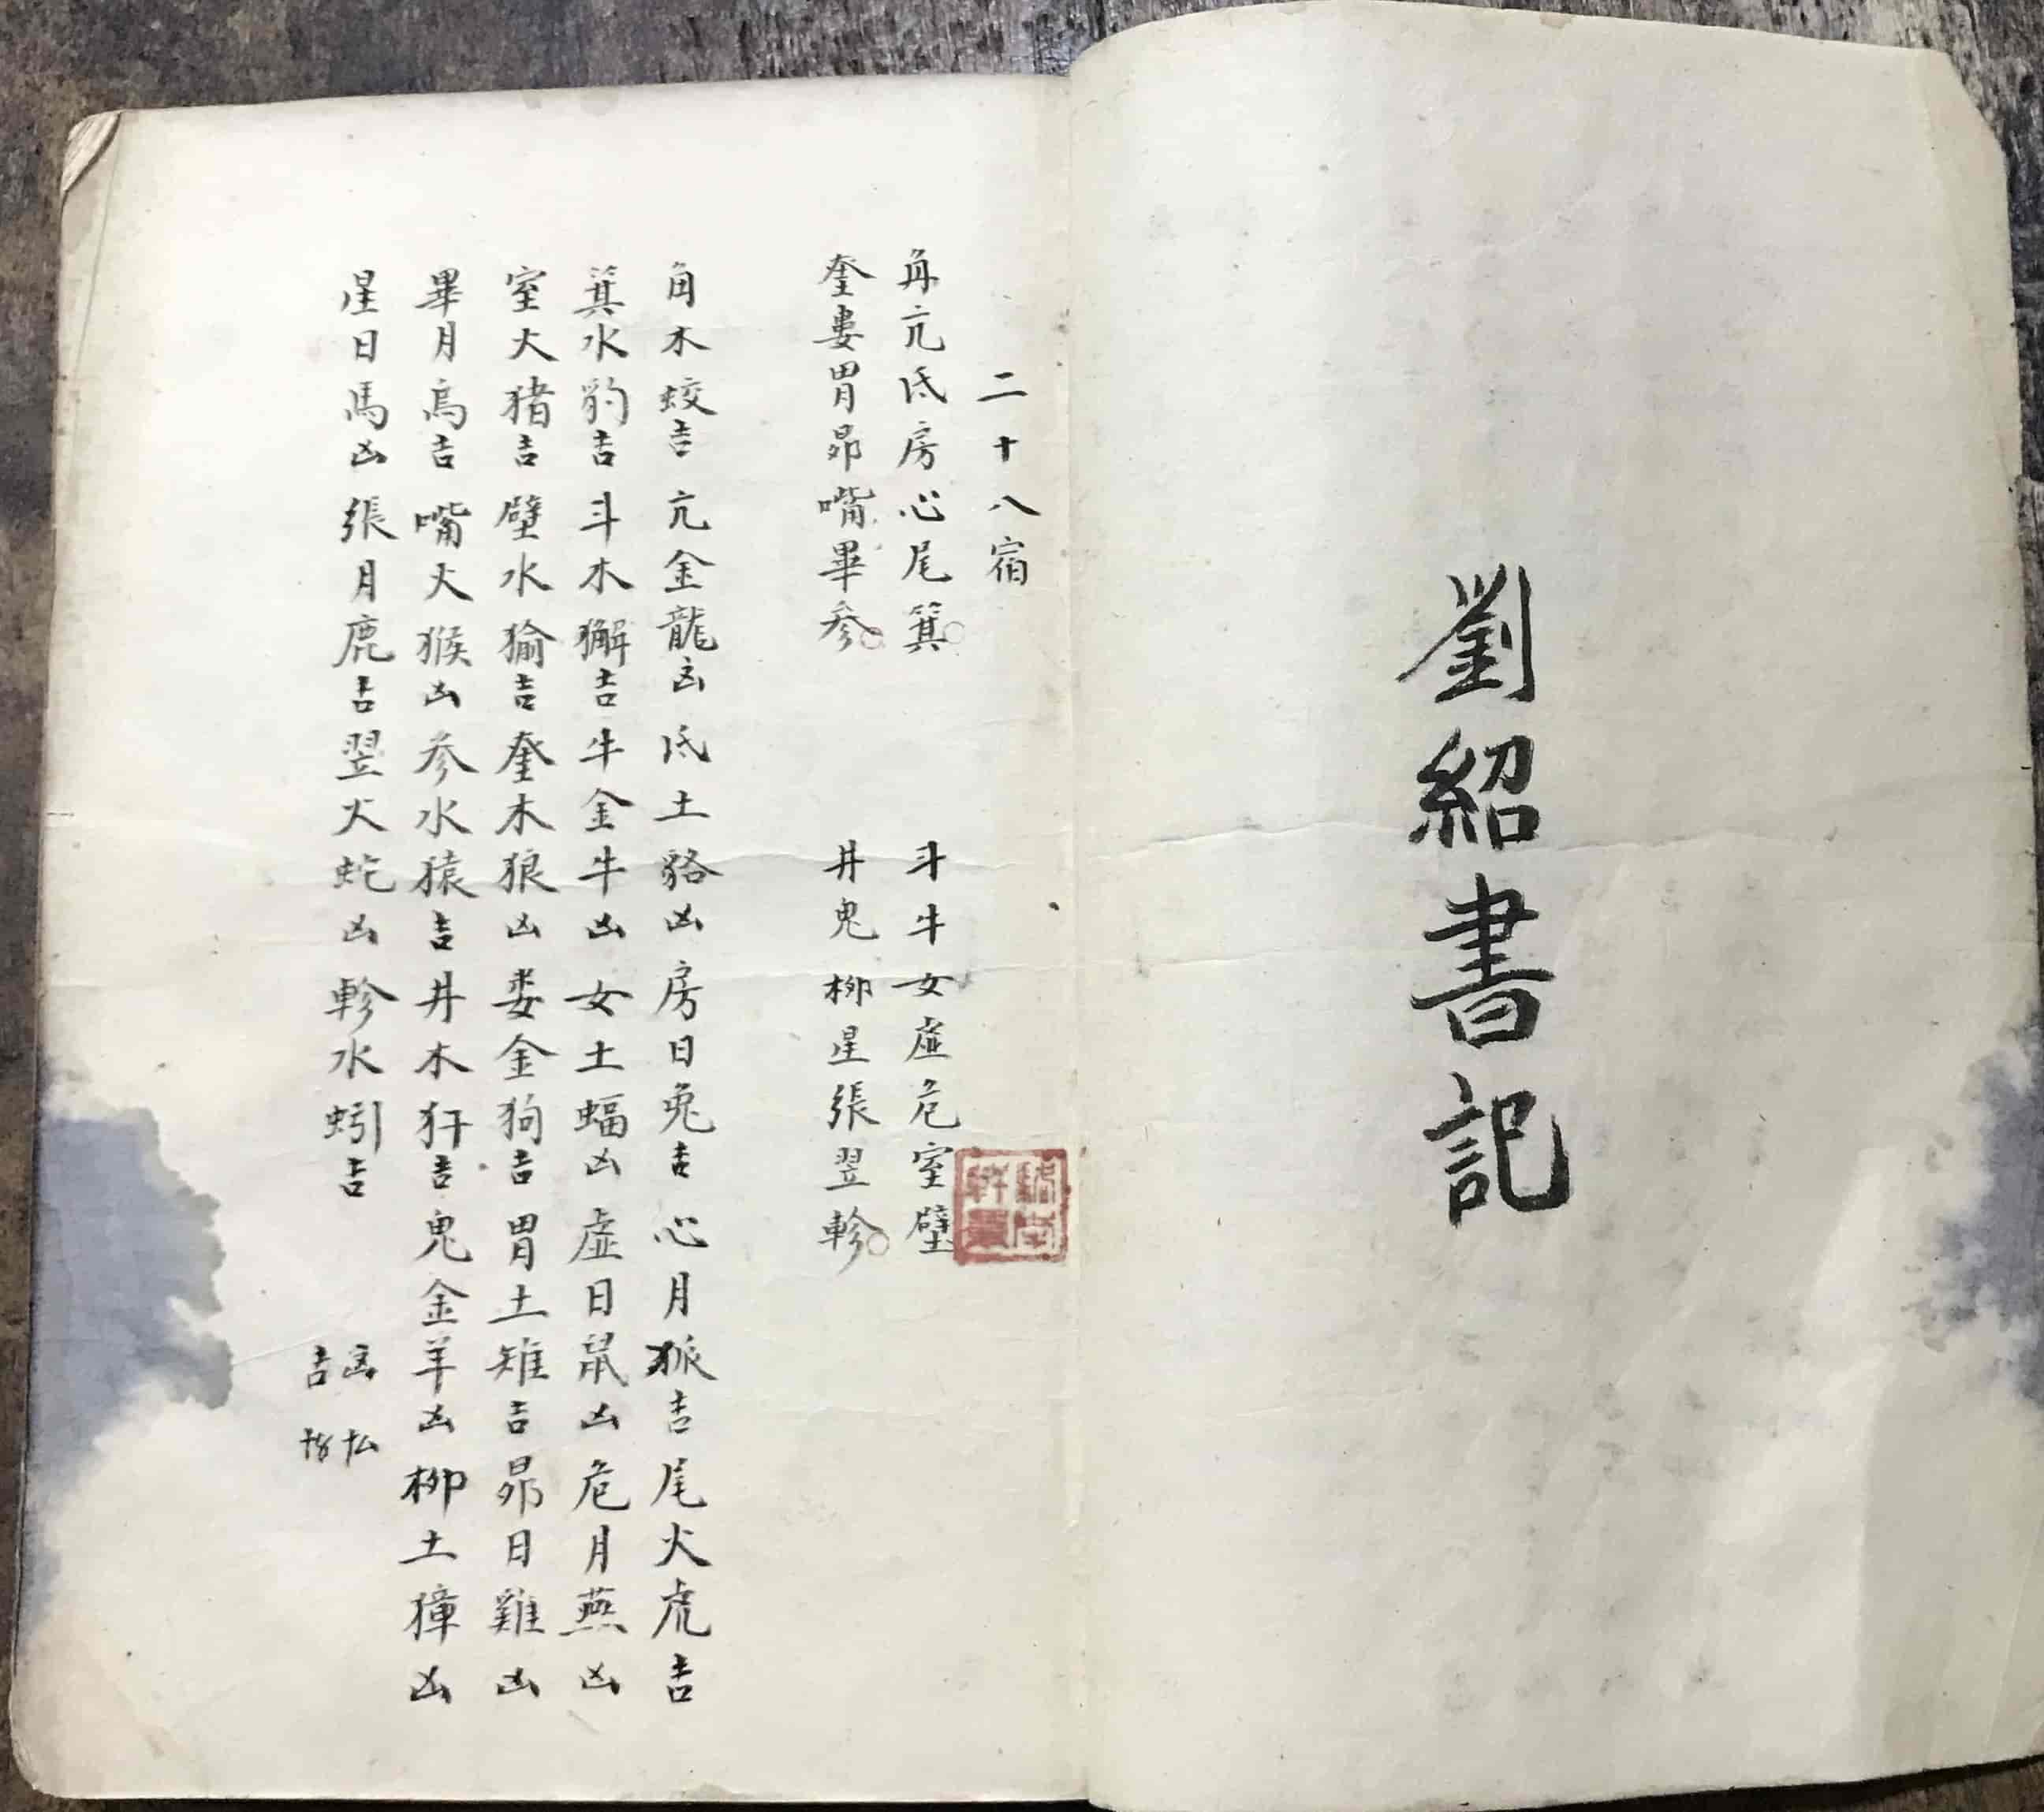 劉紹書記
二十八宿
角亢氐房心尾箕 斗牛女虛危室壁
奎婁胃昴嘴畢參 井鬼柳星張翌軫
角木蛟吉 亢金龍凶 氐土貉凶 房日兎吉 心月狐吉 尾火虎吉
箕水豹吉 斗木獬吉 牛金牛凶 女土蝠凶 虛日鼠凶 危月燕凶
室火猪吉 壁水㺄吉 奎木狼凶 娄金狗吉 胃土雉吉 昴日雞凶
畢月烏吉 嘴火猴凶 參水猿吉 井木犴吉 鬼金羊凶 柳土獐凶
星日馬凶 張月鹿吉 翌火蛇凶 軫水蚓吉
凶
吉